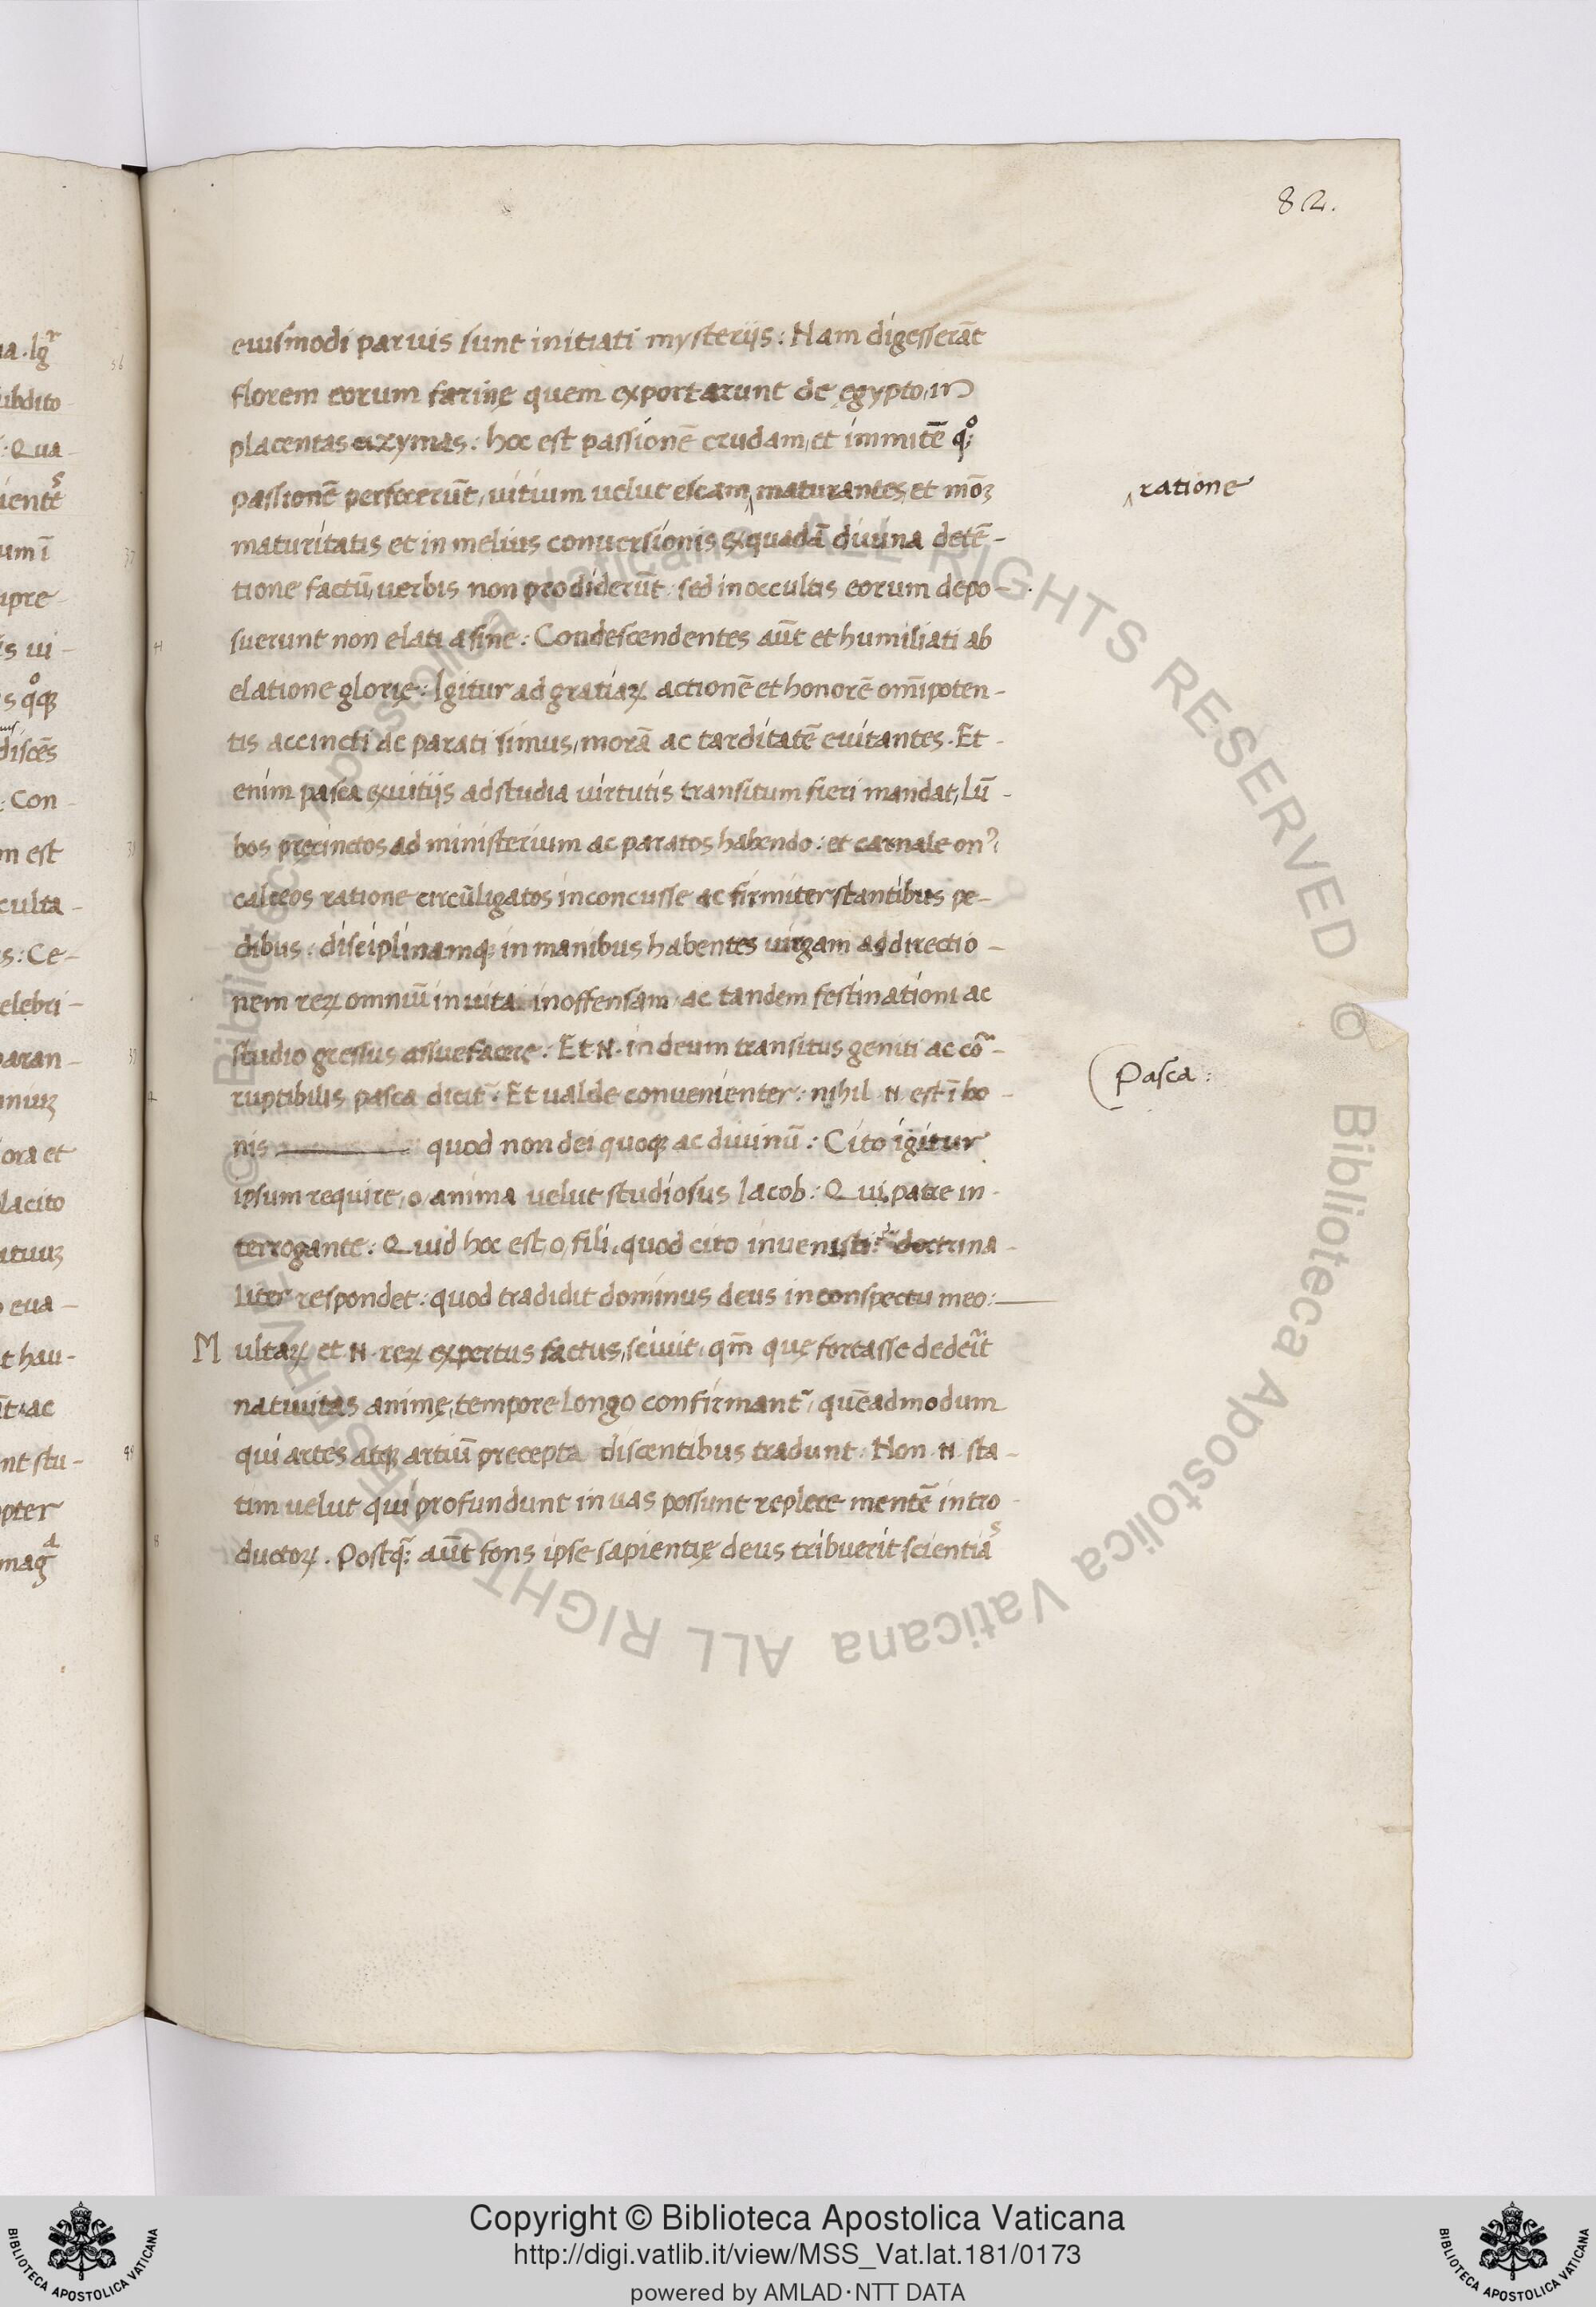 82.
eiusmodi paruis sunt initiati mysterijs: Nam digesserāt
florem eorum farinę quem exportarunt de ęgypto, in
placentas azymas: hoc est passionē crudam, et immitē qͦ;
passionē perfecerūt, uitium uelut escam ‸ maturantes, et mōꝫ
‸ ratione
maturitatis et in melius conuersionis ex quadā diuina detē-
tione factū, uerbis non prodiderūt: sed in occultis eorum depo-
suerunt non elati a fine: Condescendentes aūt et humiliati ab
elatione glorię: Igitur ad gratiaꝝ actionē et honorē om̄ipoten-
tis accincti ac parati simus, morā ac tarditatē euitantes. Et-
enim pasca ex uitijs ad studia uirtutis transitum fieri mandat, Lū-
bos pręcinctos ad ministerium ac paratos habendo: et carnale on⁹:
calceos ratione circūligatos inconcusse ac firmiter stantibus pe-
dibus: disciplinamqꝫ in manibus habentes uirgam ad directio-
nem reꝝ omniū in uita inoffensam, ac tandem festinationi ac
studio gressus assuefacere: Et .N. in deum transitus geniti ac cor̃-
ruptibilis pasca dicit̃: Et ualde conuenienter: nihil .N. est ī bo-
Pasca:
nis quod non dei quoqꝫ ac diuinū: Cito igitur
ipsum require, o, anima uelut studiosus Iacob: Qui, patre in-
terrogante: Quid hoc est, o, fili, quod cito inuenisti: doctrina-
liter respondet: quod tradidit dominus deus in conspectu meo:
Multaꝝ et .N. reꝝ expertus factus, sciuit, qm̄ quę fortasse dedeīt
natiuitas animę, tempore longo confirmant̃, quēadmodum
qui artes atqꝫ artiū precepta discentibus tradunt: Non .N. sta-
tim uelut qui profundunt in uas possunt replere mentē intro-
ductoꝝ. Postq̃; aūt fons ipse sapientię deus tribuerit scientiās
Copyright © Biblioteca Apostolica Vaticana
http://digi.vatlib.it/view/MSS_Vat.lat.181/0173
powered by AMLAD·NTT DATA
BIBLIOTECA APOSTOLICA VATICANA
BIBLIOTECA APOSTOLICA VATICANA
© Biblioteca Apostolica Vaticana ALL RIGHTS RESERVED © Biblioteca Apostolica Vaticana ALL RIGHTS RESERVED